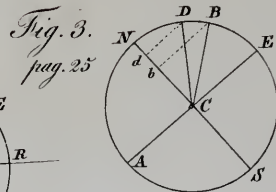 Fig. 3.
pag. 25
N
D
B
E
d
b
C
A
S
E
R